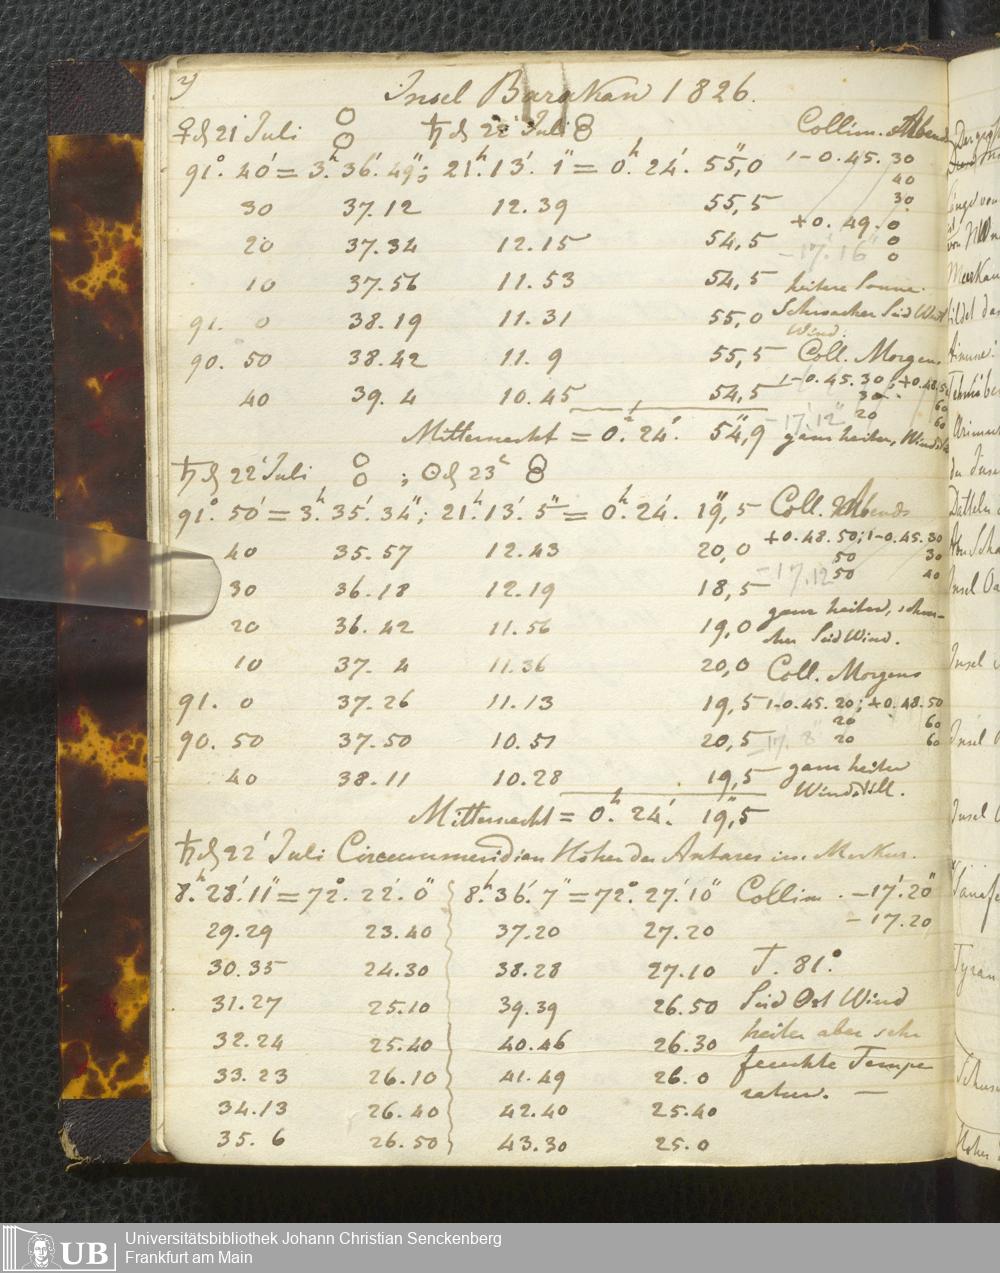 Insel Barakan 1826.
♀ d 21' Juli ♄ d 22' Juli Collim. Abends
91°. 40' = 3h. 36'. 49"; 21h. 13'. 1" = 0h. 24'. 55",0 1-0.45.30
40
30 37.12 12.39 55,5 30
+0.49.0
20 37.34 12.15 54,5 0
-17'.16" 0
10 37.56 11.53 54,5 heitere Sonne.
91. 0 38.19 11.31 55,0 Schwacher Süd West
Wind.
90. 50 38.42 11. 9 55,5 Coll. Morgens
40 39. 4 10.45 54,5 1-0.45.30; +0.48.50
30 60
-17'.12" 20 60
Mitternacht = 0h. 24'. 54",9 ganz heiter, Windstill
♄ d 22' Juli ; ☉ d 23'
91°. 50' = 3h. 35'. 34"; 21h. 13'. 5" = 0h. 24'. 19",5 Coll. Abends
+0.48.50; 1-0.45.30
40 35.57 12.43 20,0 50 30
-17.12 50 40
30 36.18 12.19 18,5 ganz heiter, schwa-
20 36.42 11.56 19,0 cher Süd Wind.
10 37. 4 11.36 20,0 Coll. Morgens
91. 0 37.26 11.13 19,5 1-0.45.20; +0.48.50
20 60
90. 50 37.50 10.51 20,5 -17'. 8" 20 60
40 38.11 10.28 19,5 ganz heiter
Windstill.
Mitternacht = 0h. 24'. 19",5
♄ d 22' Juli Circummeridian Höhen des Antares im Merkur.
8h. 28'. 11" = 72°. 22'. 0" 8h. 36'. 7" = 72°. 27'. 10" Collim. -17'.20"
29.29 23.40 37.20 27.20 -17.20
30.35 24.30 38.28 27.10 T. 81°.
31.27 25.10 39.39 26.50 Süd Ost Wind
32.24 25.40 40.46 26.30 heiter aber sehr
33.23 26.10 41.49 26.0 feuchte Tempe
34.13 26.40 42.40 25.40 ratur. —
35. 6 26.50 43.30 25.0
UB
Universitätsbibliothek Johann Christian Senckenberg
Frankfurt am Main